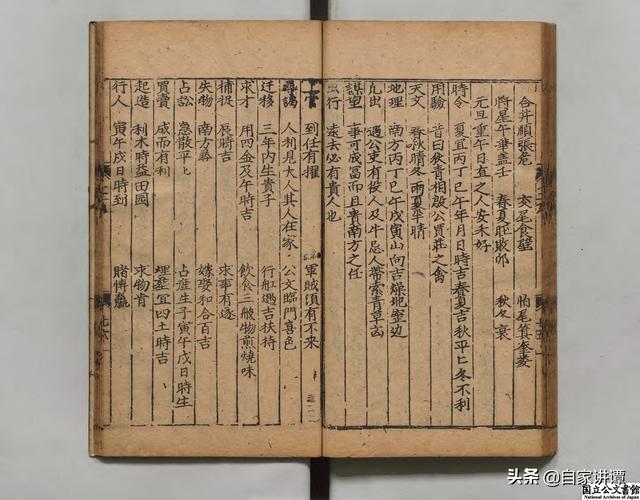 合井願張危 交尾食壁 怕尾箕奎婁
將星午 肇盖壬 春夏旺敗卯 秋冬衰
元旦重午日直之人安禾好
時令 夏宜丙丁巳午年月日時吉春夏吉秋平匕冬不利
用驗 昔曰狄青相殷公買莊之禽
天文 春秋晴冬雨夏半晴
地理 南方丙丁巳午戌寅山向吉燥地窰边
九出 遇公吏有投人及牛忌人帶索青草凶
謀望 事可成冨而且貴南方之任
出行 遠去必有貴人也
官 到任有擢 軍賊須有不來
尋謁 人利見大人其人在家 公文臨門喜色
迁移 三年内生貴子 行舡遇吉扶持
求才 用四金及午時吉 飲食三般物煎燒味
捕捉 辰時吉 求事有遂
失物 南方尋 嫁娶和合百吉
占訟 急散平匕 占產生子寅午戌日時生
買賣 成而有利 埋塟宜四土時吉
起造 利木時益田园 求物肯
行人 寅午戌日時到 賭博贏
头条 @自家讲谭
国立公文書館
National Archives of Japan